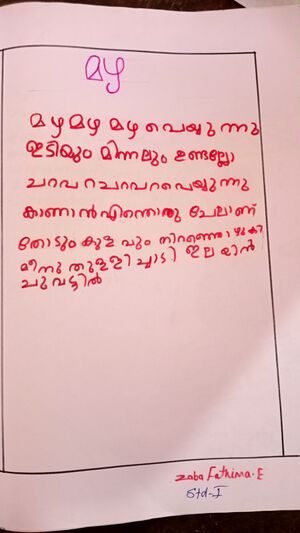 മഴ
മഴ മഴ മഴ പെയ്യുന്നു
ഇടിയും മിന്നലും ഉണ്ടല്ലോ
ചറപറചറപറപെയ്യുന്നു
കാണാൻഎന്തൊരു ചേലാണ്
തോടും കുളവും നിറഞ്ഞൊഴുകി
മീനു തുള്ളിച്ചാടി ഇലയിൻ
ചുവട്ടിൽ
Zaba Fathima.E
Std-I